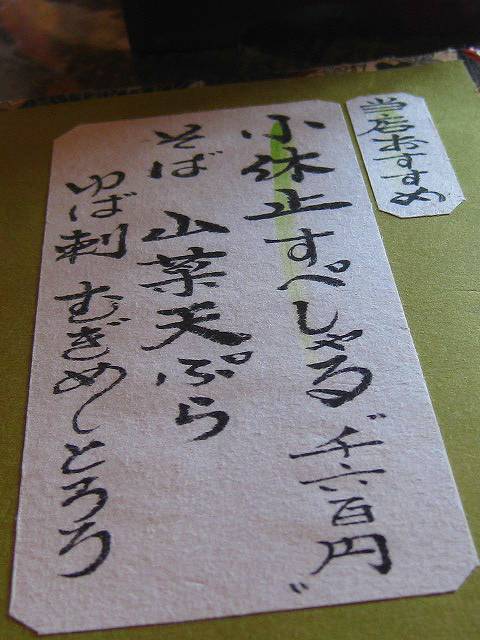 当店おすすめ
小休止すぺしゃる 〃千六百円〃
そば 山菜天ぷら
ゆば刺 むぎめしとろろ